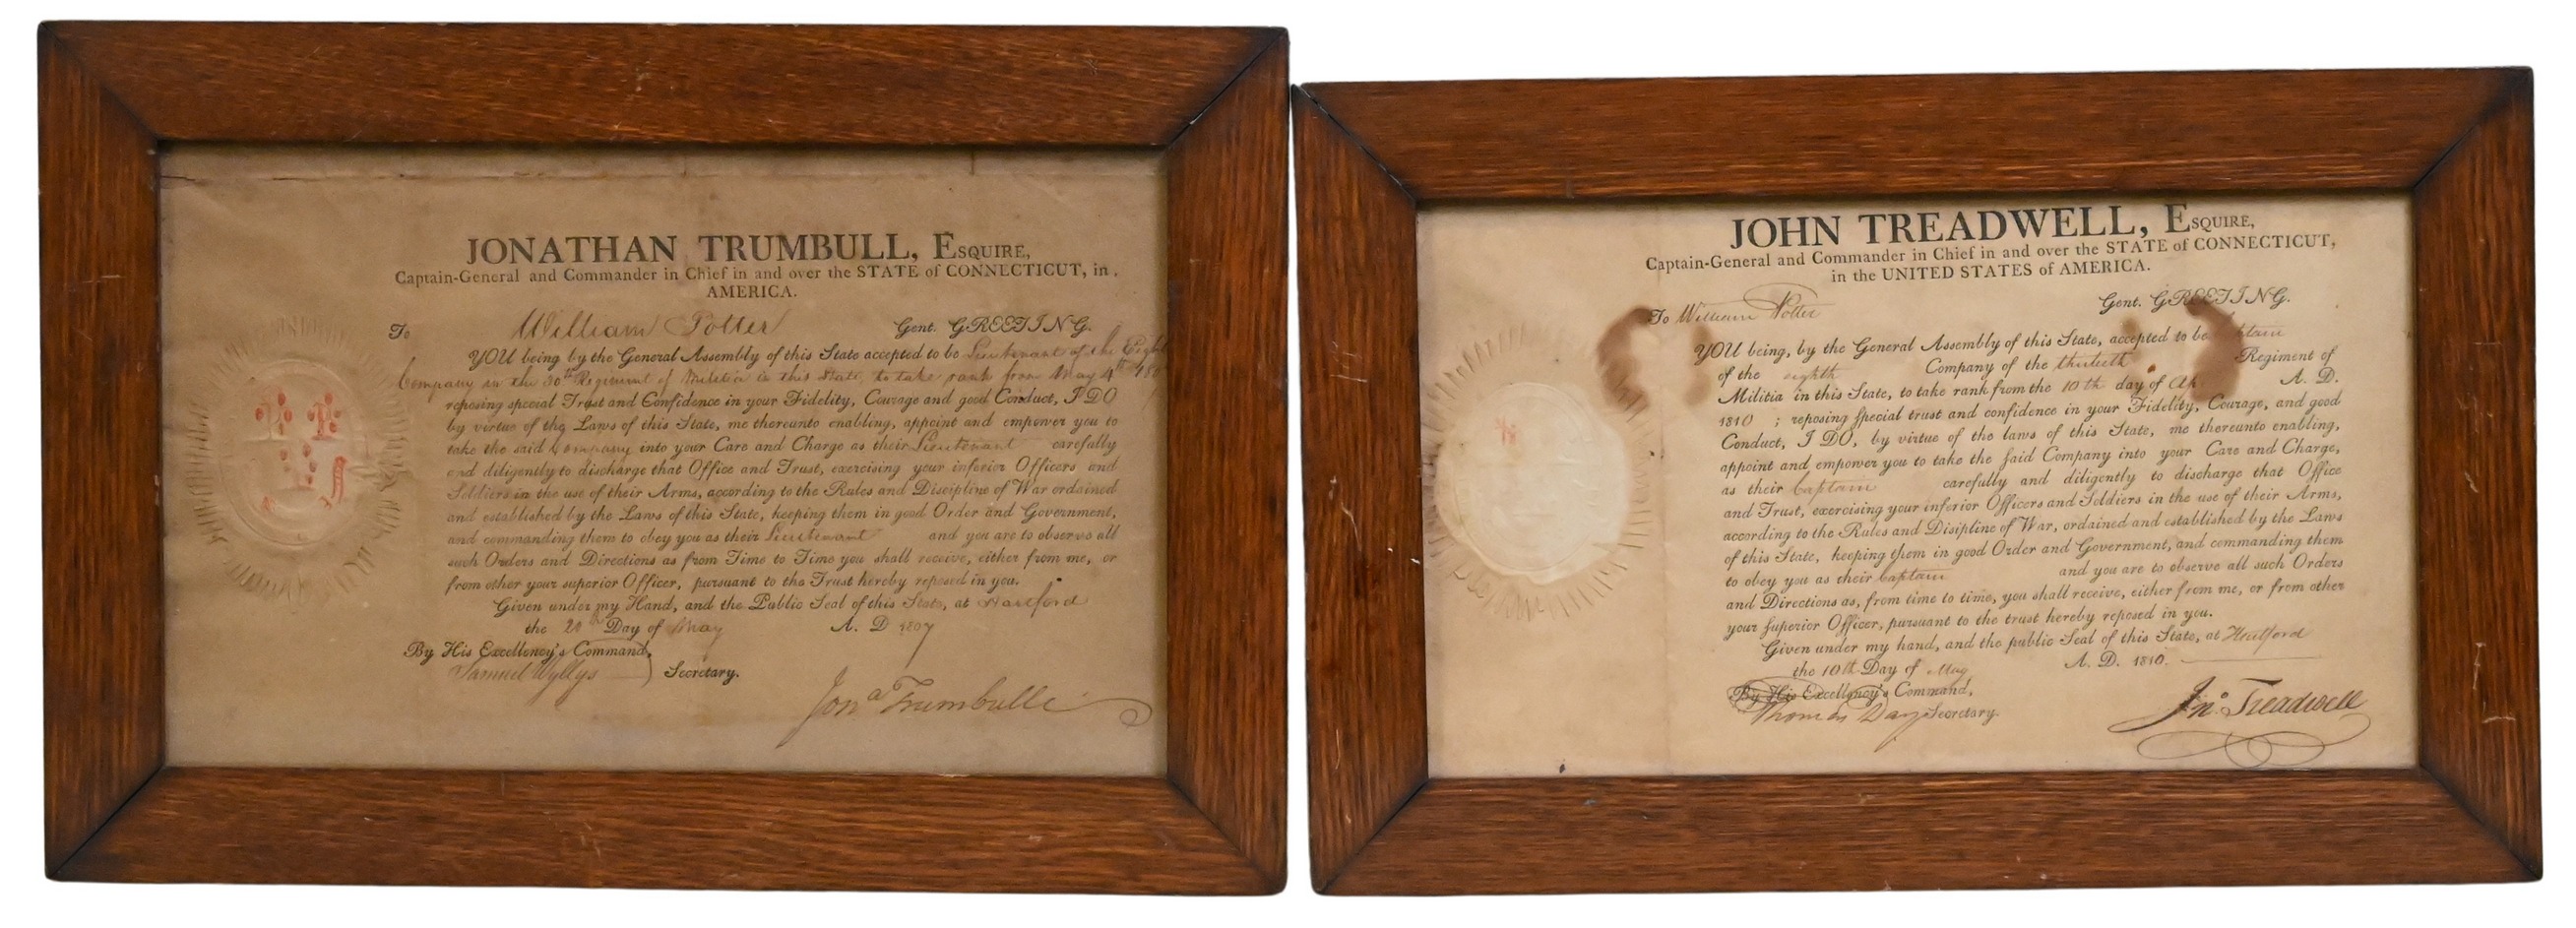 JONATHAN TRUMBULL, ESQUIRE,
Captain-General and Commander in Chief in and over the STATE of CONNECTICUT, in
AMERICA.
To William Potter Gent. GREETING.
YOU being by the General Assembly of this State accepted to be Lieutenant of the Eighth
Company in the 30th Regiment of Militia in this State, to take rank from May 4th
reposing special Trust and Confidence in your Fidelity, Courage and good Conduct, I DO
by virtue of the Laws of this State, me thereunto enabling, appoint and empower you to
take the said Company into your Care and Charge as their Lieutenant carefully
and diligently to discharge that Office and Trust, exercising your inferior Officers and
Soldiers in the use of their Arms, according to the Rules and Discipline of War ordained
and established by the Laws of this State, keeping them in good Order and Government,
and commanding them to obey you as their Lieutenant and you are to observe all
such Orders and Directions as from Time to Time you shall receive, either from me, or
from other your superior Officer, pursuant to the Trust hereby reposed in you.
Given under my Hand, and the Public Seal of this State, at Hartford
the Day of May A. D 1807
By His Excellency's Command,
Samuel Wyllys Secretary.
Jona Trumbull
JOHN TREADWELL, ESQUIRE,
Captain-General and Commander in Chief in and over the STATE of CONNECTICUT,
in the UNITED STATES of AMERICA.
To William Potter Gent. GREETING.
YOU being, by the General Assembly of this State, accepted to be Captain
of the eighth Company of the thirtieth Regiment of
Militia in this State, to take rank from the 10th day of A. D.
1810 ; reposing special trust and confidence in your Fidelity, Courage, and good
Conduct, I DO, by virtue of the laws of this State, me thereunto enabling,
appoint and empower you to take the said Company into your Care and Charge,
as their Captain carefully and diligently to discharge that Office
and Trust, exercising your inferior Officers and Soldiers in the use of their Arms,
according to the Rules and Disipline of War, ordained and established by the Laws
of this State, keeping them in good Order and Government, and commanding them
to obey you as their Captain and you are to observe all such Orders
and Directions as, from time to time, you shall receive, either from me, or from other
your superior Officer, pursuant to the trust hereby reposed in you.
Given under my hand, and the public Seal of this State, at Hartford
the 10th Day of May A. D. 1810.
By His Excellency's Command,
Thomas Day Secretary.
Jno. Treadwell